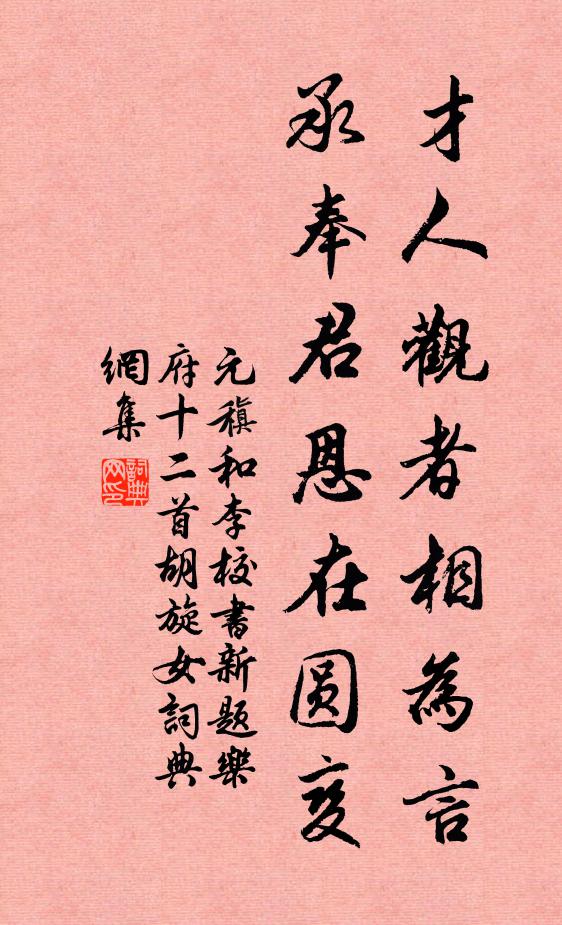 才人觀者相為言
承奉君恩在圓变
元稹和李校書新題樂
府十二首胡旋女詞典
網集
詞典
网印